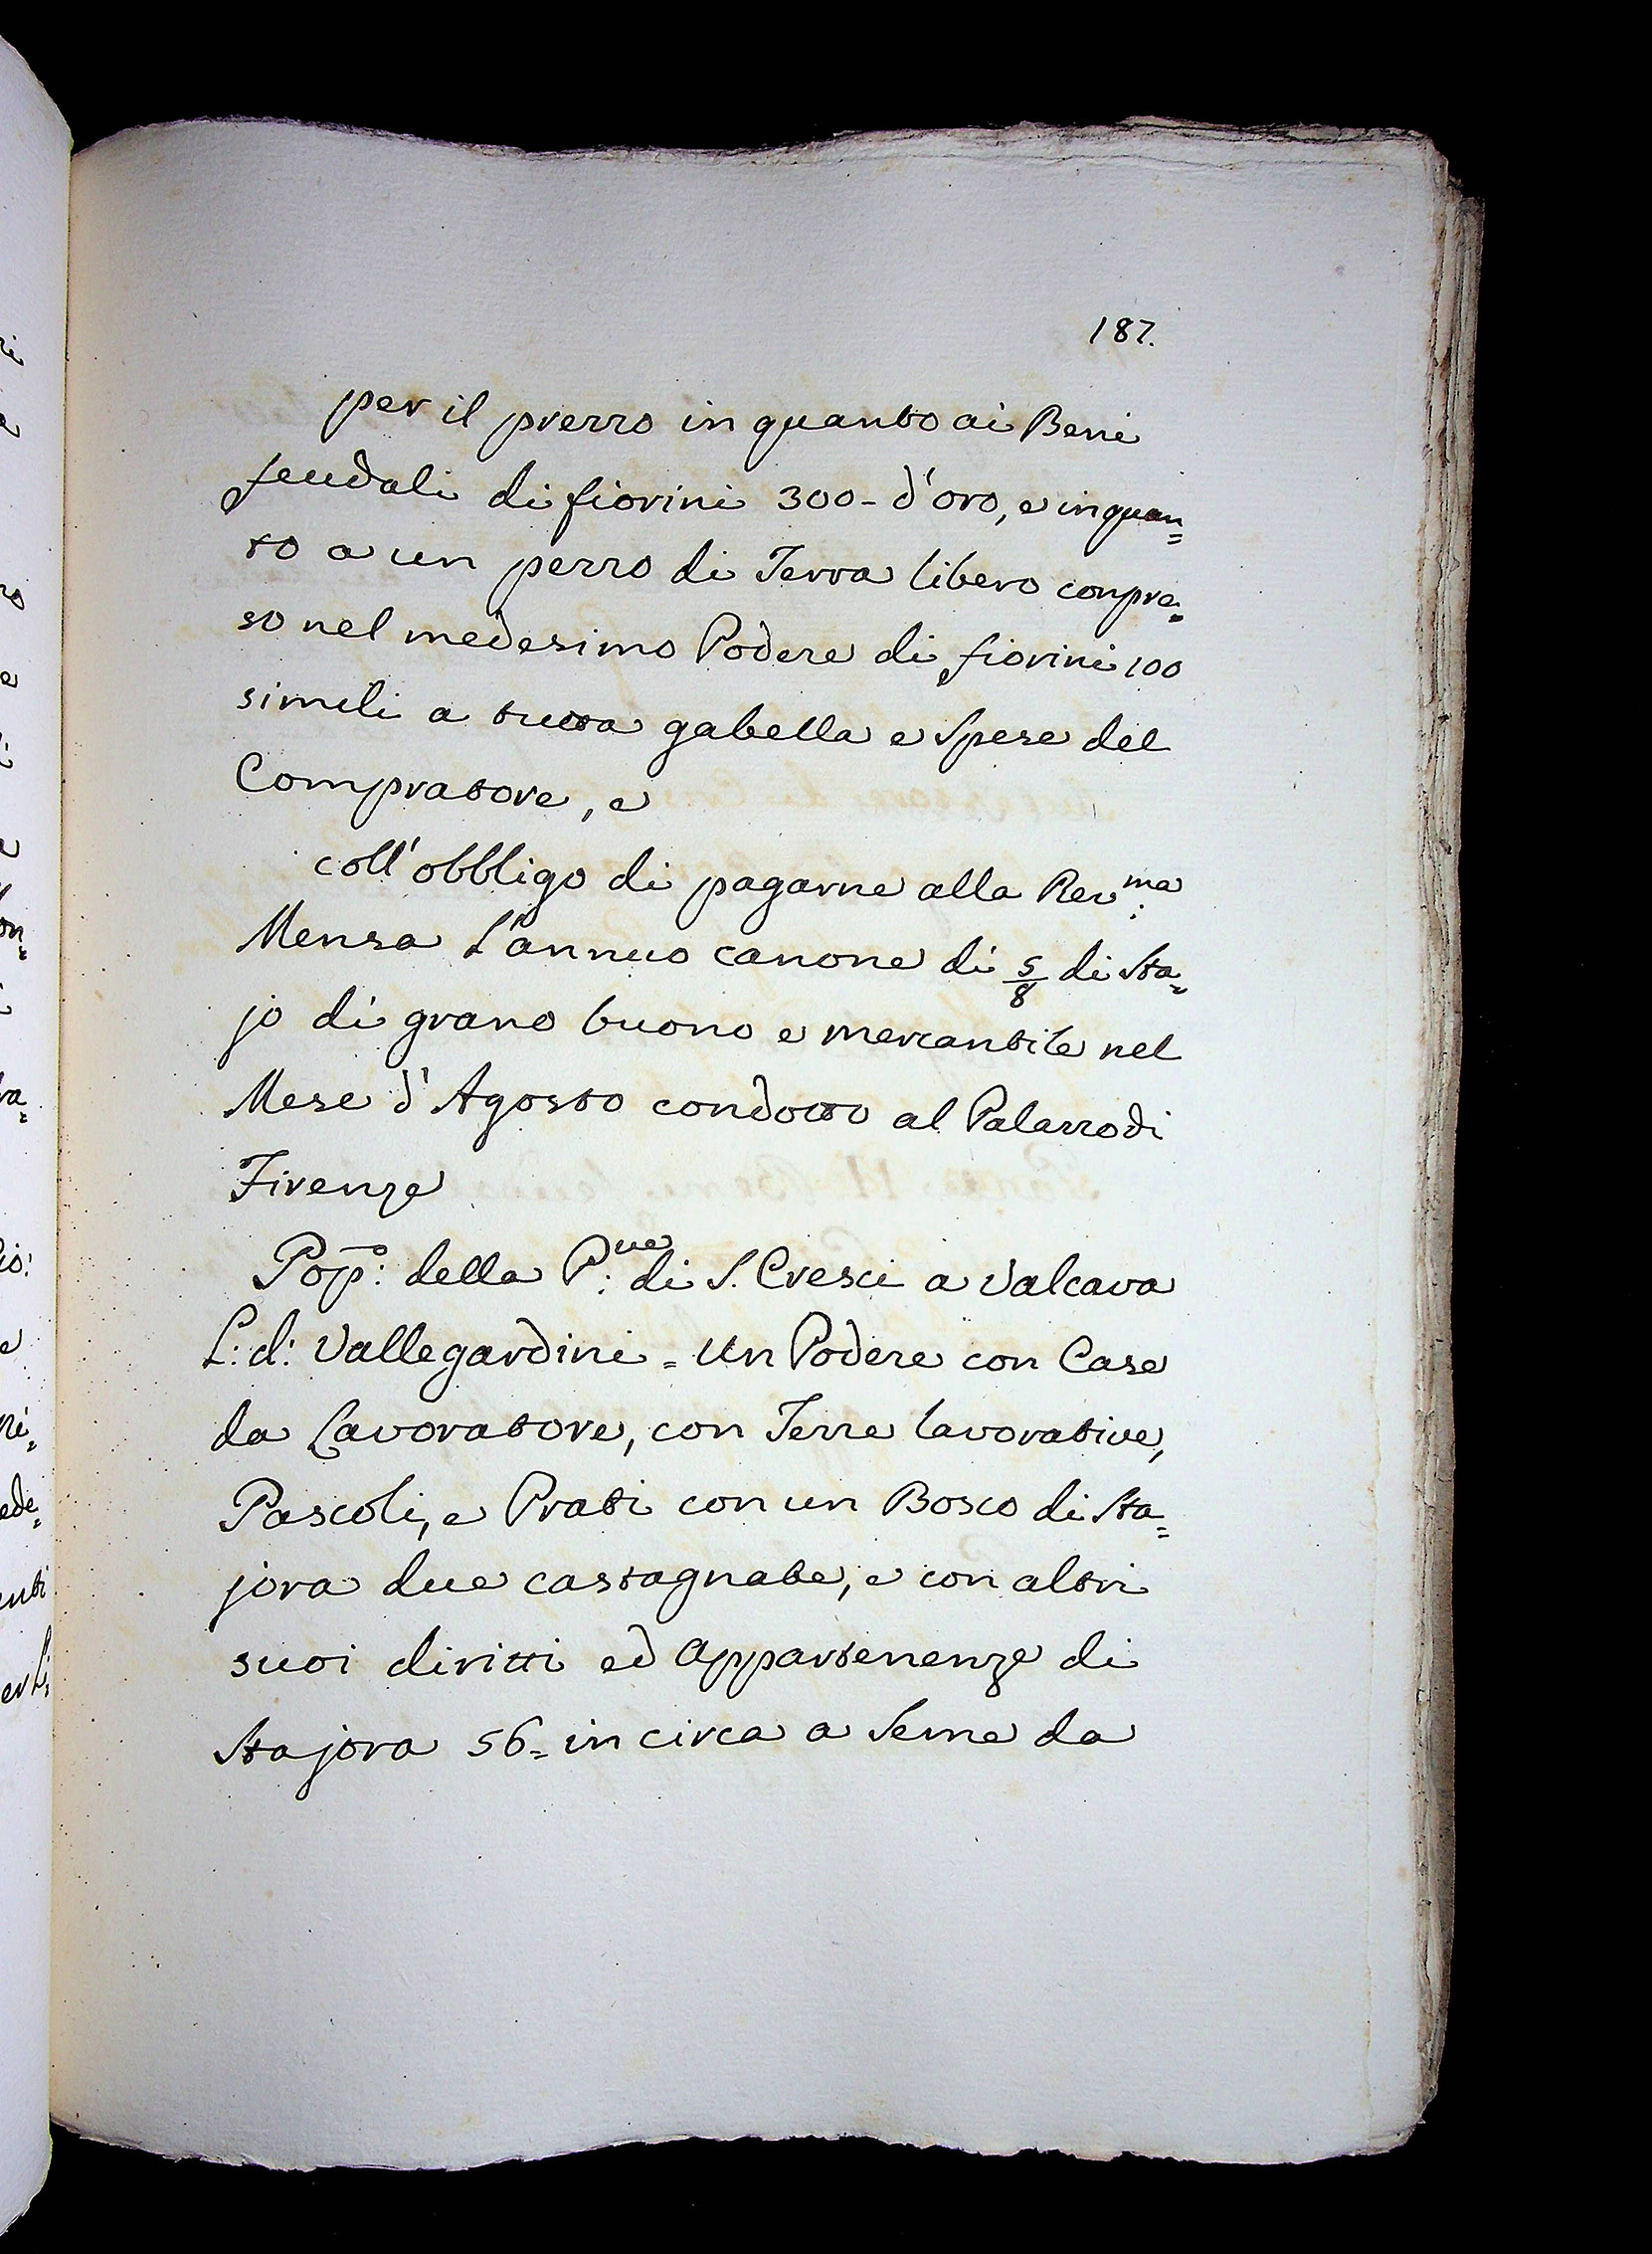 187.
per il prezzo in quanto ai Beni
feudali di fiorini 300- d'oro, e inquan=
to a un pezzo di Terra libero conpre=
so nel medesimo Podere di fiorini 100
simili a tutta gabella e Spese del
Compratore, e
coll'obbligo di pagarne alla Rev:ma
Mensa L'annuo canone di 5/8 di Sta=
jo di grano buono e mercantile nel
Mese d'Agosto condotto al Palazzo di
Firenze
Pop:o della P:ve di S. Cresci a Valcava
L: d: Vallegardini = Un Podere con Case
da Lavoratore, con Terre lavorative,
Pascoli, e Prati con un Bosco di Sta=
jora due castagnate, e con altri
suoi diritti ed Appartenenze di
Stajora 56= in circa a Seme da